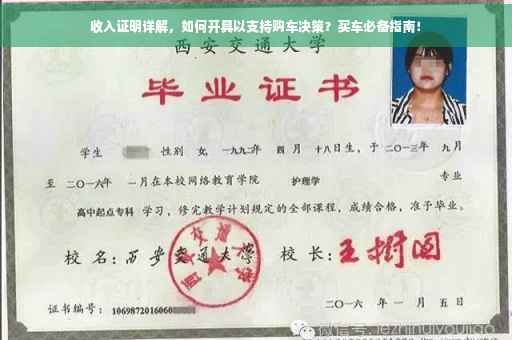 收入证明详解，如何开具以支持购车决策？买车必备指南！
西安交通大学
毕业证书
学生 性别 女，一九九二年 四 月 十八日生，于二〇一三年 九月
至 二〇一六年 一月在本校网络教育学院 护理学 专业
高中起点专科 学习，修完教学计划规定的全部课程，成绩合格，准予毕业。
校 名：西安交通大学 校 长：王树国
西安交通大学
证书编号：1069872016060
二〇一六 年 一 月 五 日
微信号: jezhinuiyoujiao